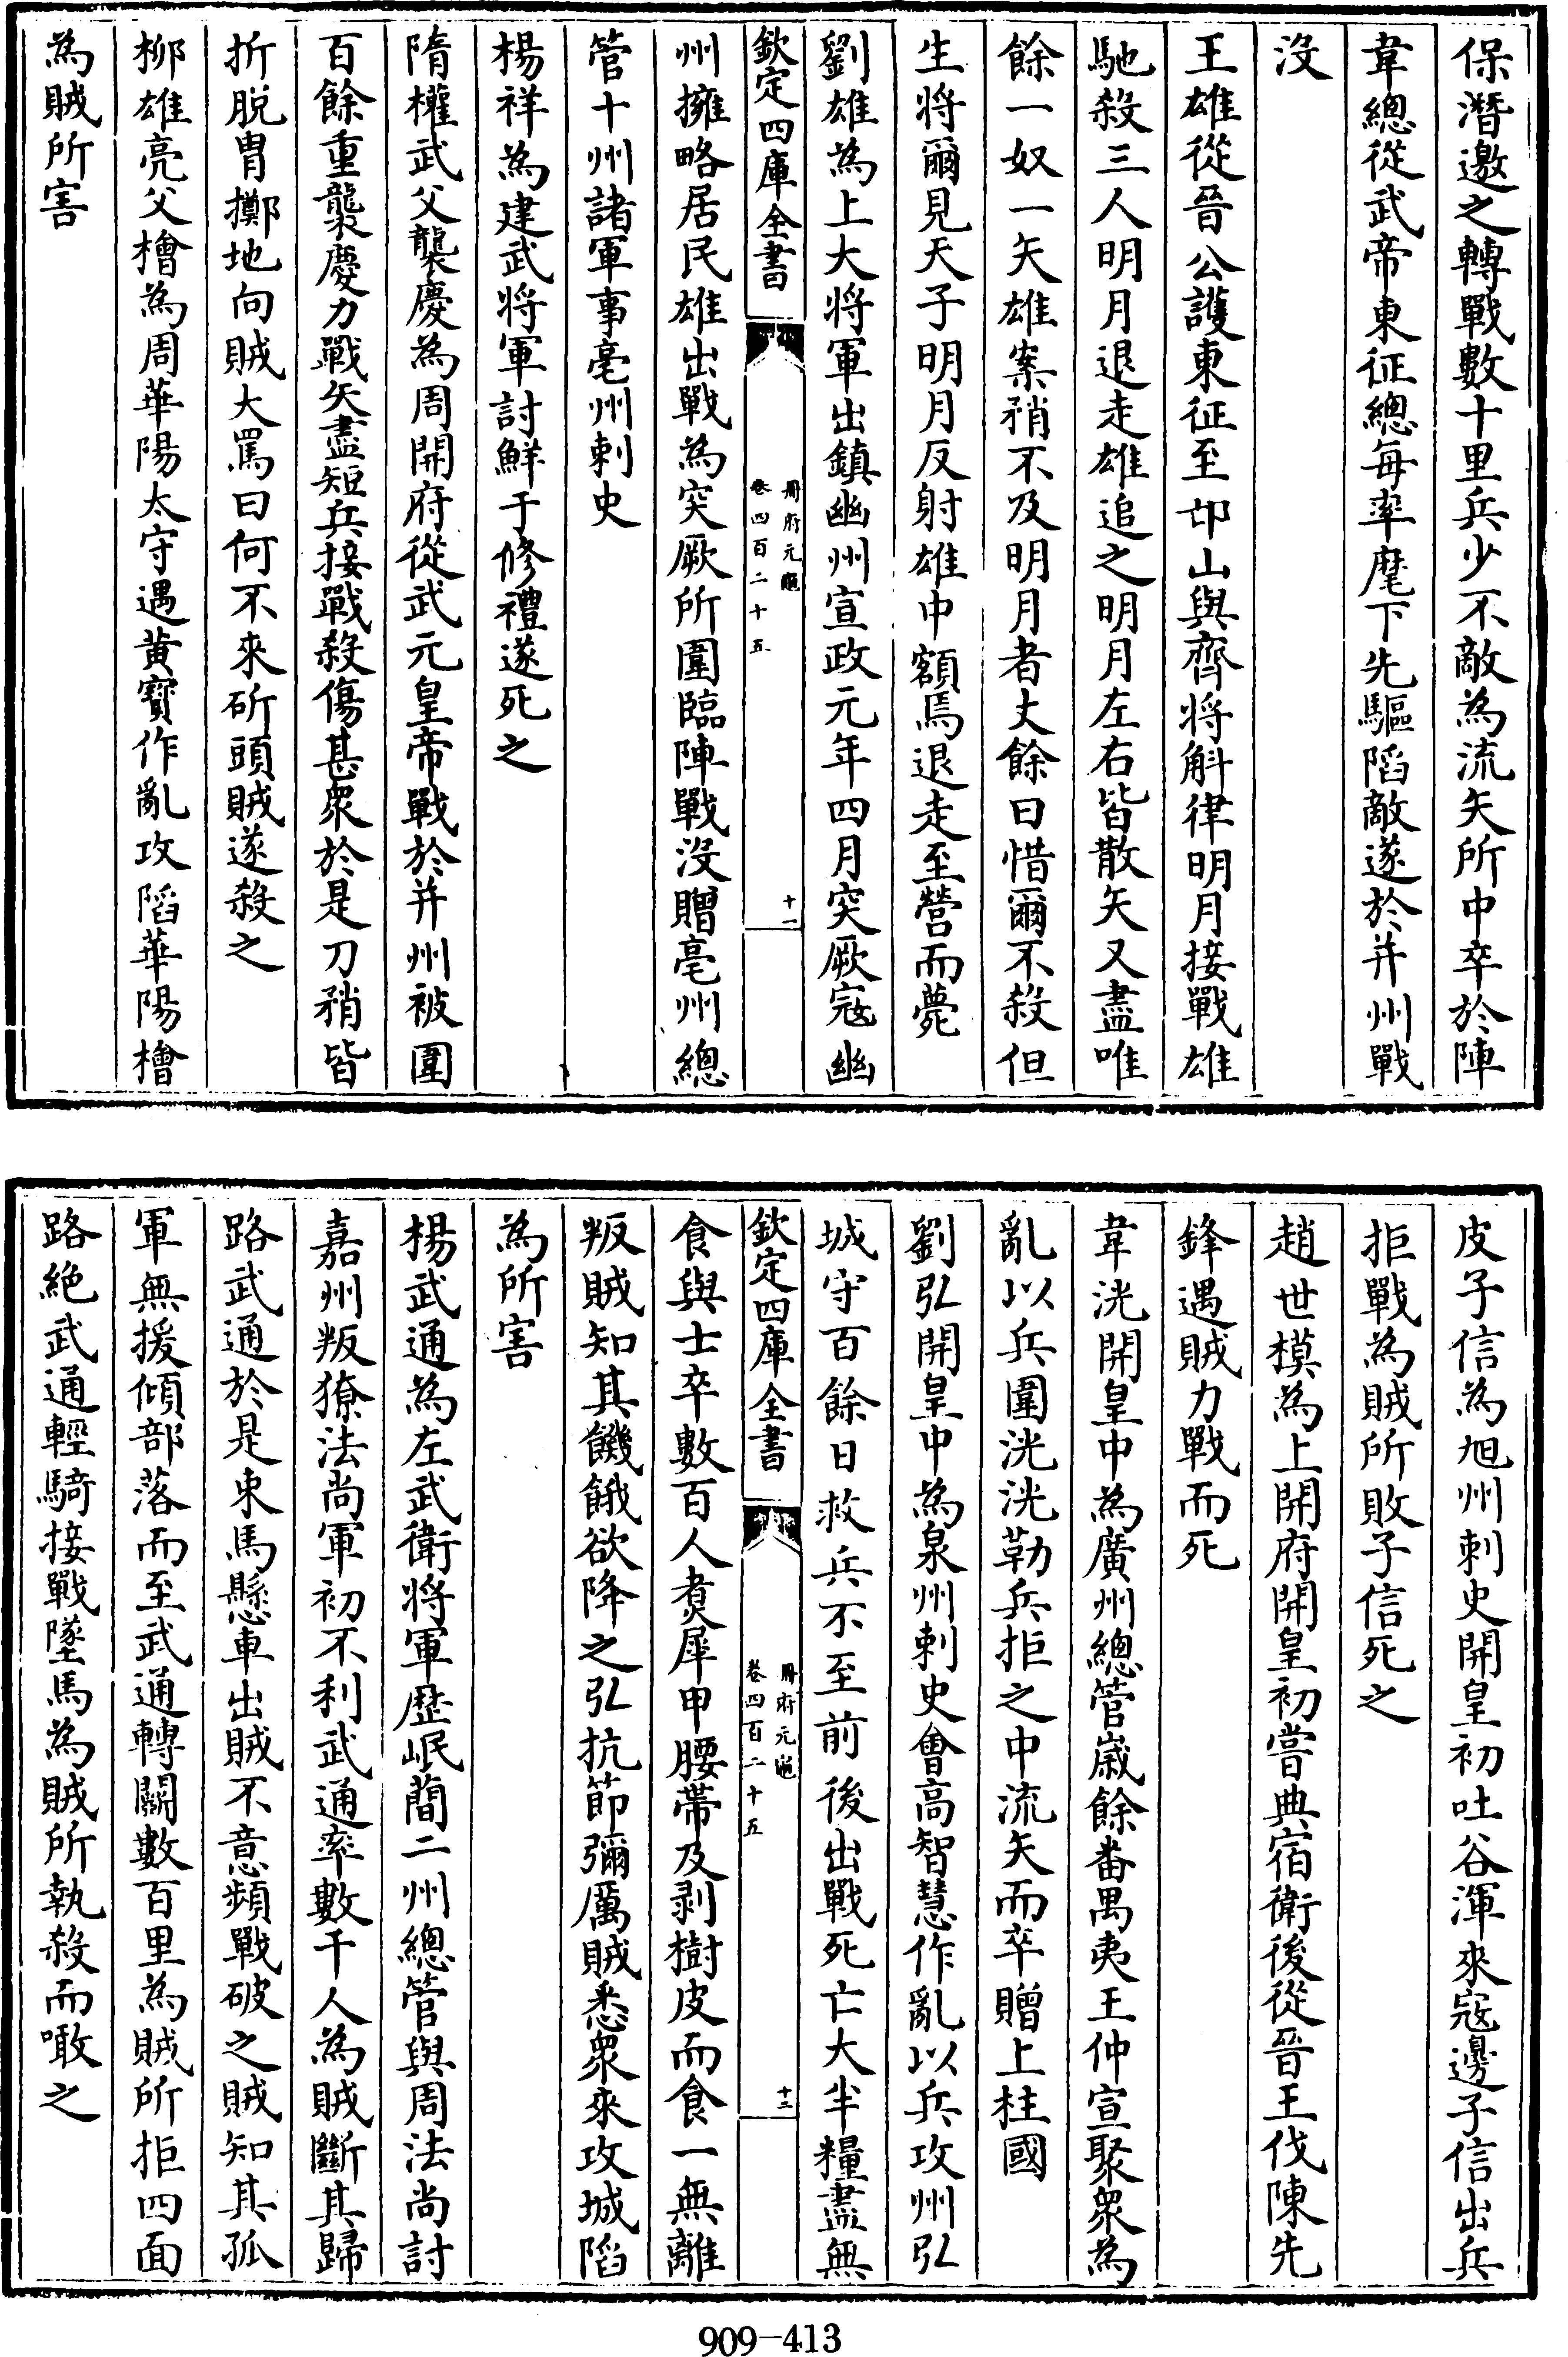 保潛邀之轉戰數十里兵少不敵為流矢所中卒於陣
韋總從武帝東征總每率麾下先驅陷敵遂於并州戰
没
王雄從晉公護東征至邙山與齊將斛律明月接戰雄
馳殺三人明月退走雄追之明月左右皆散矢又盡唯
餘一奴一矢雄案矟不及明月者丈餘曰惜爾不殺但
生將爾見天子明月反射雄中額焉退走至營而薨
劉雄為上大將軍出鎮幽州宣政元年四月突厥寇幽
欽定四庫全書
冊府元龜
卷四百二十五
十一
州擁略居民雄出戰為突厥所圍臨陣戰没贈亳州總
管十州諸軍事亳州刺史
楊祥為建武將軍討鮮于修禮遂死之
隋權武父襲慶為周開府從武元皇帝戰於并州被圍
百餘重襲慶力戰矢盡短兵接戰殺傷甚衆於是刀矟皆
折脱胄擲地向賊大罵曰何不來斫頭賊遂殺之
柳雄亮父檜為周華陽太守遇黄寶作亂攻陷華陽檜
為賊所害
皮子信為旭州刺史開皇初吐谷渾來寇邊子信出兵
拒戰為賊所敗子信死之
趙世模為上開府開皇初嘗典宿衛後從晉王伐陳先
鋒遇賊力戰而死
韋洸開皇中為廣州總管歲餘番禺夷王仲宣聚衆為
亂以兵圍洸洸勒兵拒之中流矢而卒贈上柱國
劉弘開皇中為泉州刺史會高智慧作亂以兵攻州弘
城守百餘日救兵不至前後出戰死亡大半糧盡無
欽定四庫全書
冊府元龜
卷四百二十五
十二
食與士卒數百人煮犀甲腰帶及剥樹皮而食一無離
叛賊知其饑餓欲降之弘抗節彌厲賊悉衆來攻城陷
為所害
楊武通為左武衛將軍歷岷蘭二州總管與周法尚討
嘉州叛獠法尚軍初不利武通率數千人為賊斷其歸
路武通於是束馬懸車出賊不意頻戰破之賊知其孤
軍無援傾部落而至武通轉鬭數百里為賊所拒四面
路絶武通輕騎接戰墜馬為賊所執殺而噉之
909-413